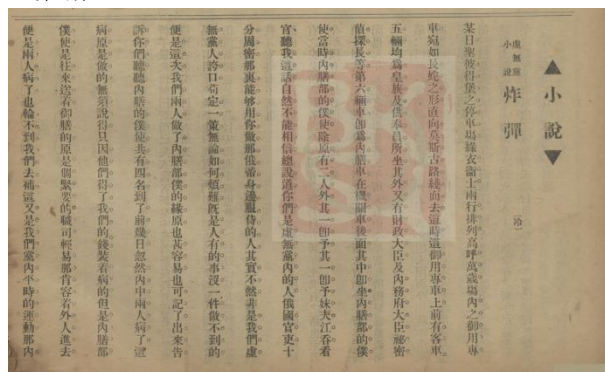 ▲小說▼
虛無黨小說 炸彈 （冷）
某日聖彼得堡之停車場綠衣衛士兩行排列高呼萬歲場內之御用專
車宛如長蛇之形直向莫斯古路綫而去這時這御用專車上前有客車
五輛均為皇族及供奉員所坐其外又有財政大臣及內務府大臣祕密
偵探長等第六輛車卽為內膳車在機關車後面其中卽坐內膳部的僕
使當時內膳部的僕使除原有二人外其一卽予其一卽予妹夫江吞看
官聽我這話自然不能相信總說道你們是虛無黨內的人俄國官吏十
分周密那裏能够用你做那俄帝身邊服侍的人其實不然非是我們虛
無黨人誇口苟定一策無論如何煩難旣是人有的事沒一件做不到的
便是這次我們兩人做了內膳部僕的緣原也甚容易也可記了出來告
訴你們聽聽內膳的僕使共有四名到了前幾日忽然內中兩人病了這
病原是做的無須說得只因他們得了我們的錢裝着病的但是內膳部
僕使是往來送着御膳的原是個緊要的職司輕易那肯容着外人進去
便是兩人病了也輪不到我們去補這又是我們黨內平時的運動那內